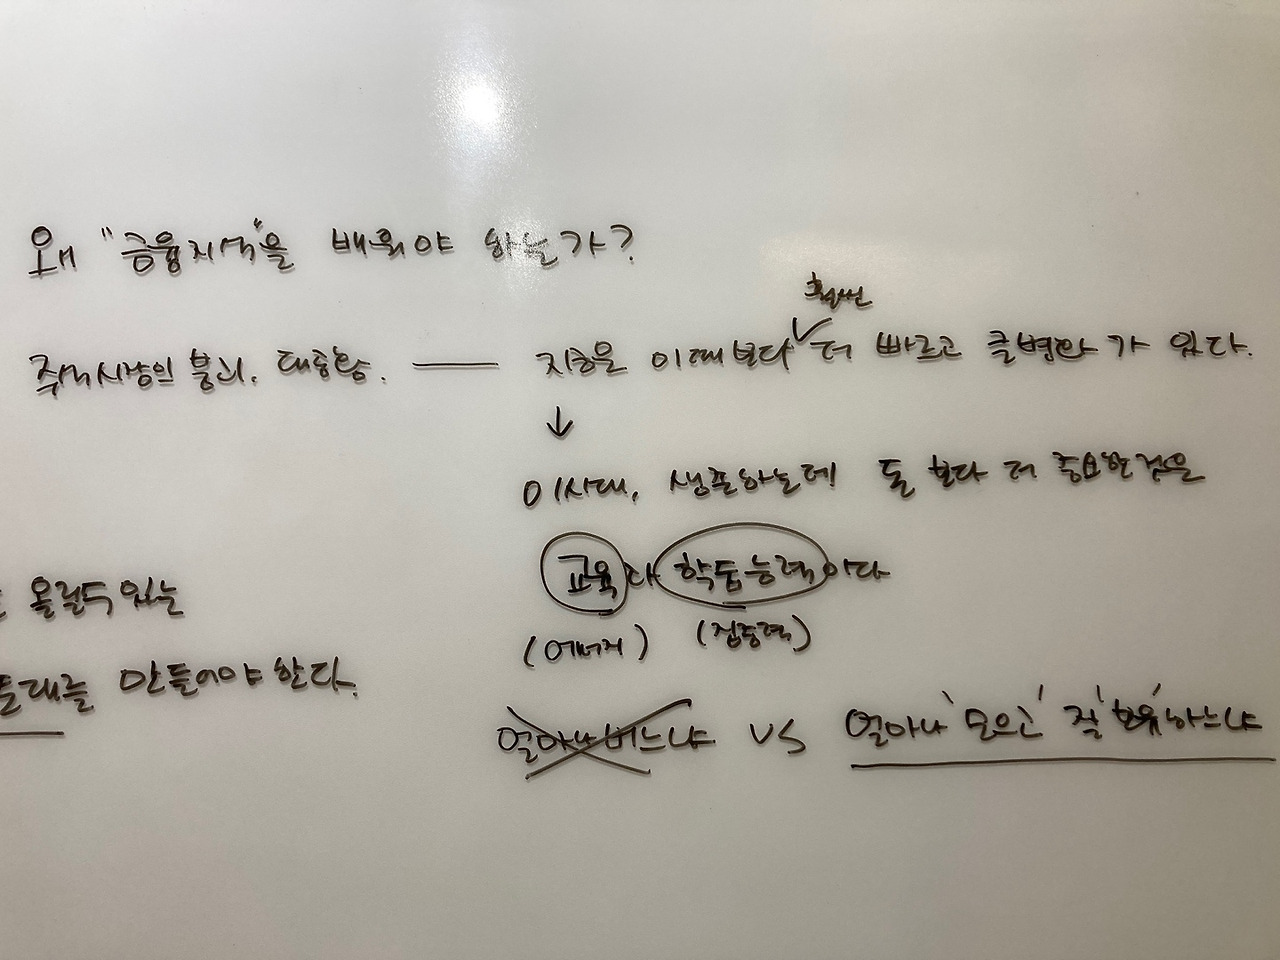 왜 "금융지식"을 배워야 하는가?
훨씬
주식시장의 붕괴. 대공황. — 지금은 이때보다 ✓ 더 빠르고 큰변화가 있다.
↓
이시대, 생존하는데 돈 보다 더 중요한것은
교육과 학습능력이다
(에너지) (집중력)
올릴수있는
토대를 만들어야 한다.
얼마나 버느냐 vs 얼마나 '모으고' 잘 '보유'하느냐